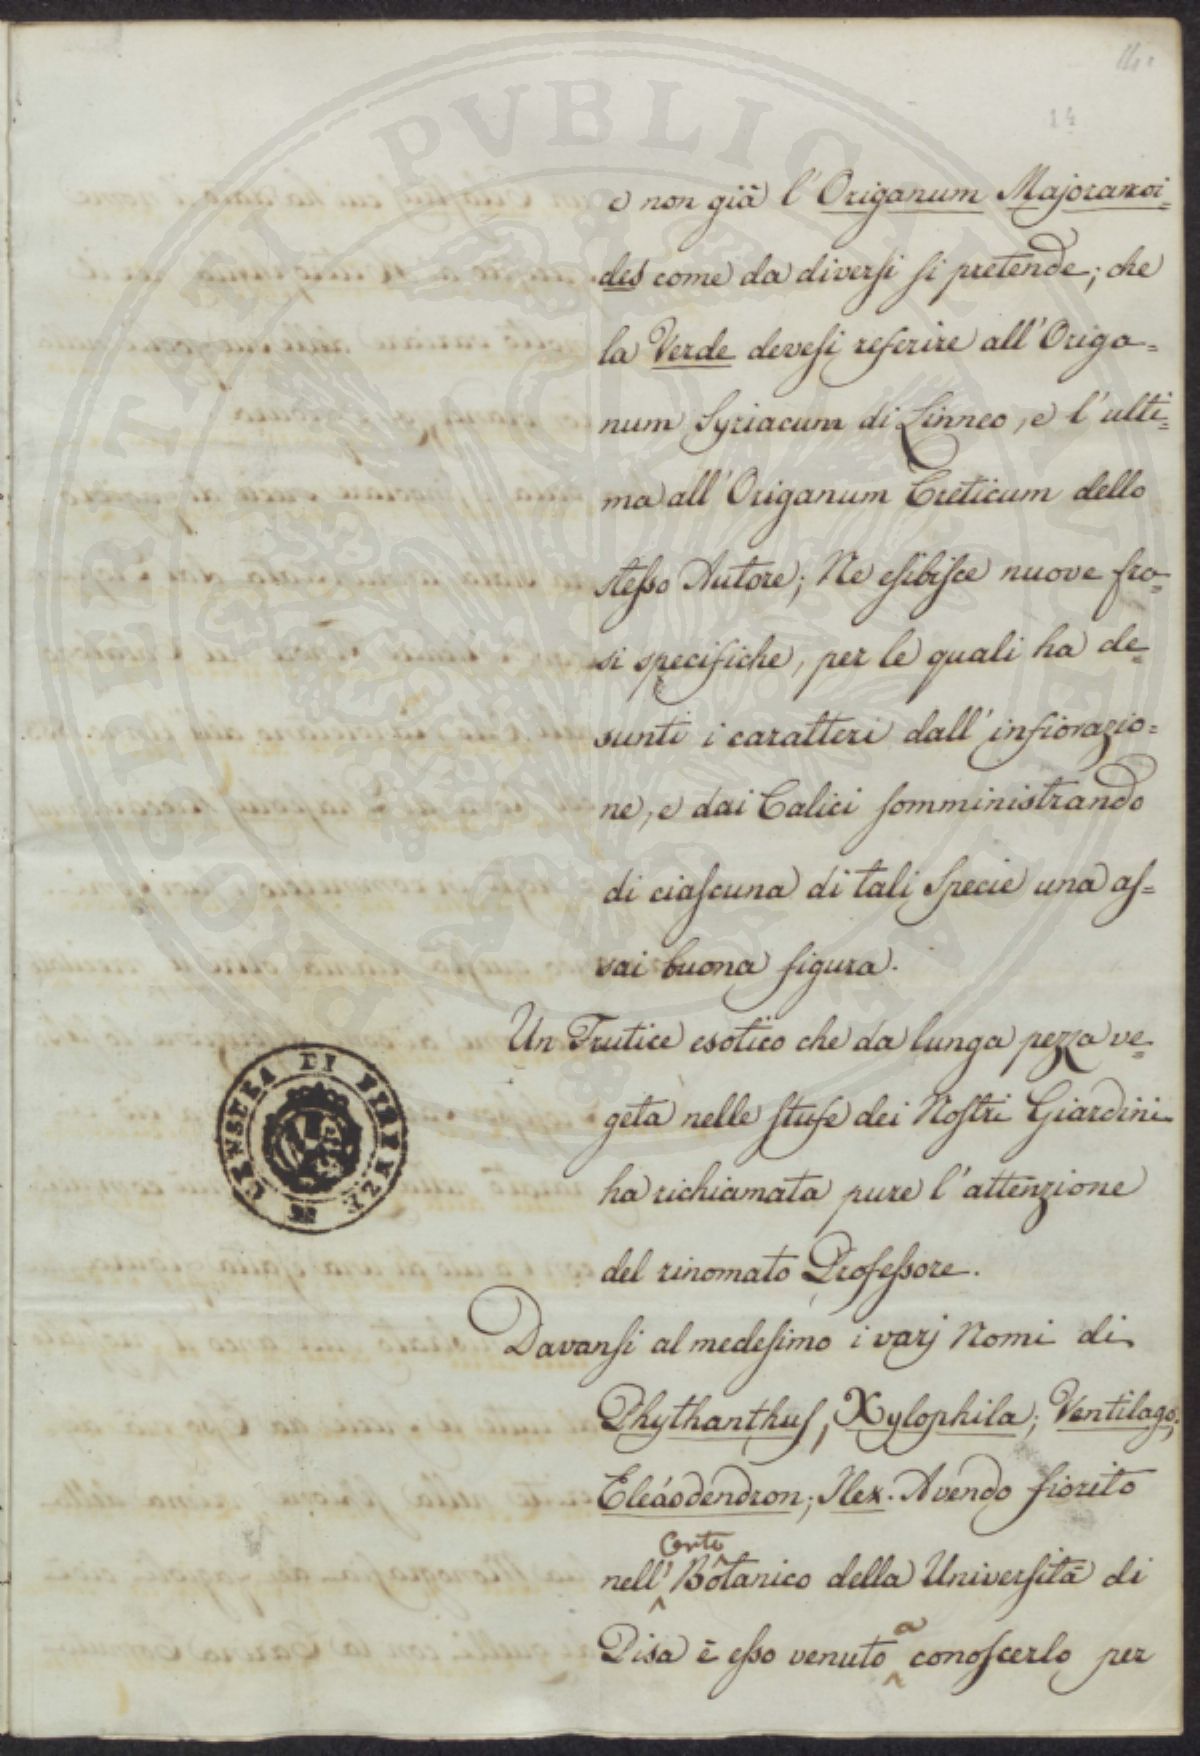 14.
14
e non già l'Origanum Majoranoi=
des come da diversi si pretende; che
la Verde devesi referire all'Origa=
num Syriacum di Linneo, e l'ulti=
ma all'Origanum Creticum dello
stesso Autore; Ne esibisce nuove fra=
si specifiche, per le quali ha de=
sunti i caratteri dall'infiorazio=
ne, e dai Calici somministrando
di ciascuna di tali Specie una as=
sai buona figura.
Un Frutice esotico che da lunga pezza ve=
geta nelle stufe dei Nostri Giardini
ha richiamata pure l'attenzione
del rinomato Professore.
Davansi al medesimo i varj Nomi di
Phythanthus, Xylophila; Ventilago;
Eleáodendron; Ilex. Avendo fiorito
Orto
nell' Botanico della Università di
a
Pisa è esso venuto conoscerlo per
PROSPERITATI PVBLICAE AVGENDAE